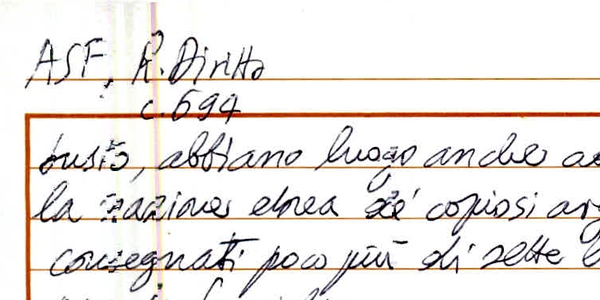 ASF, R. Diritto
c. 694
busto, abbiano luogo anche a
la nazione ebrea de' copiosi arg
consegnati poco più di sette